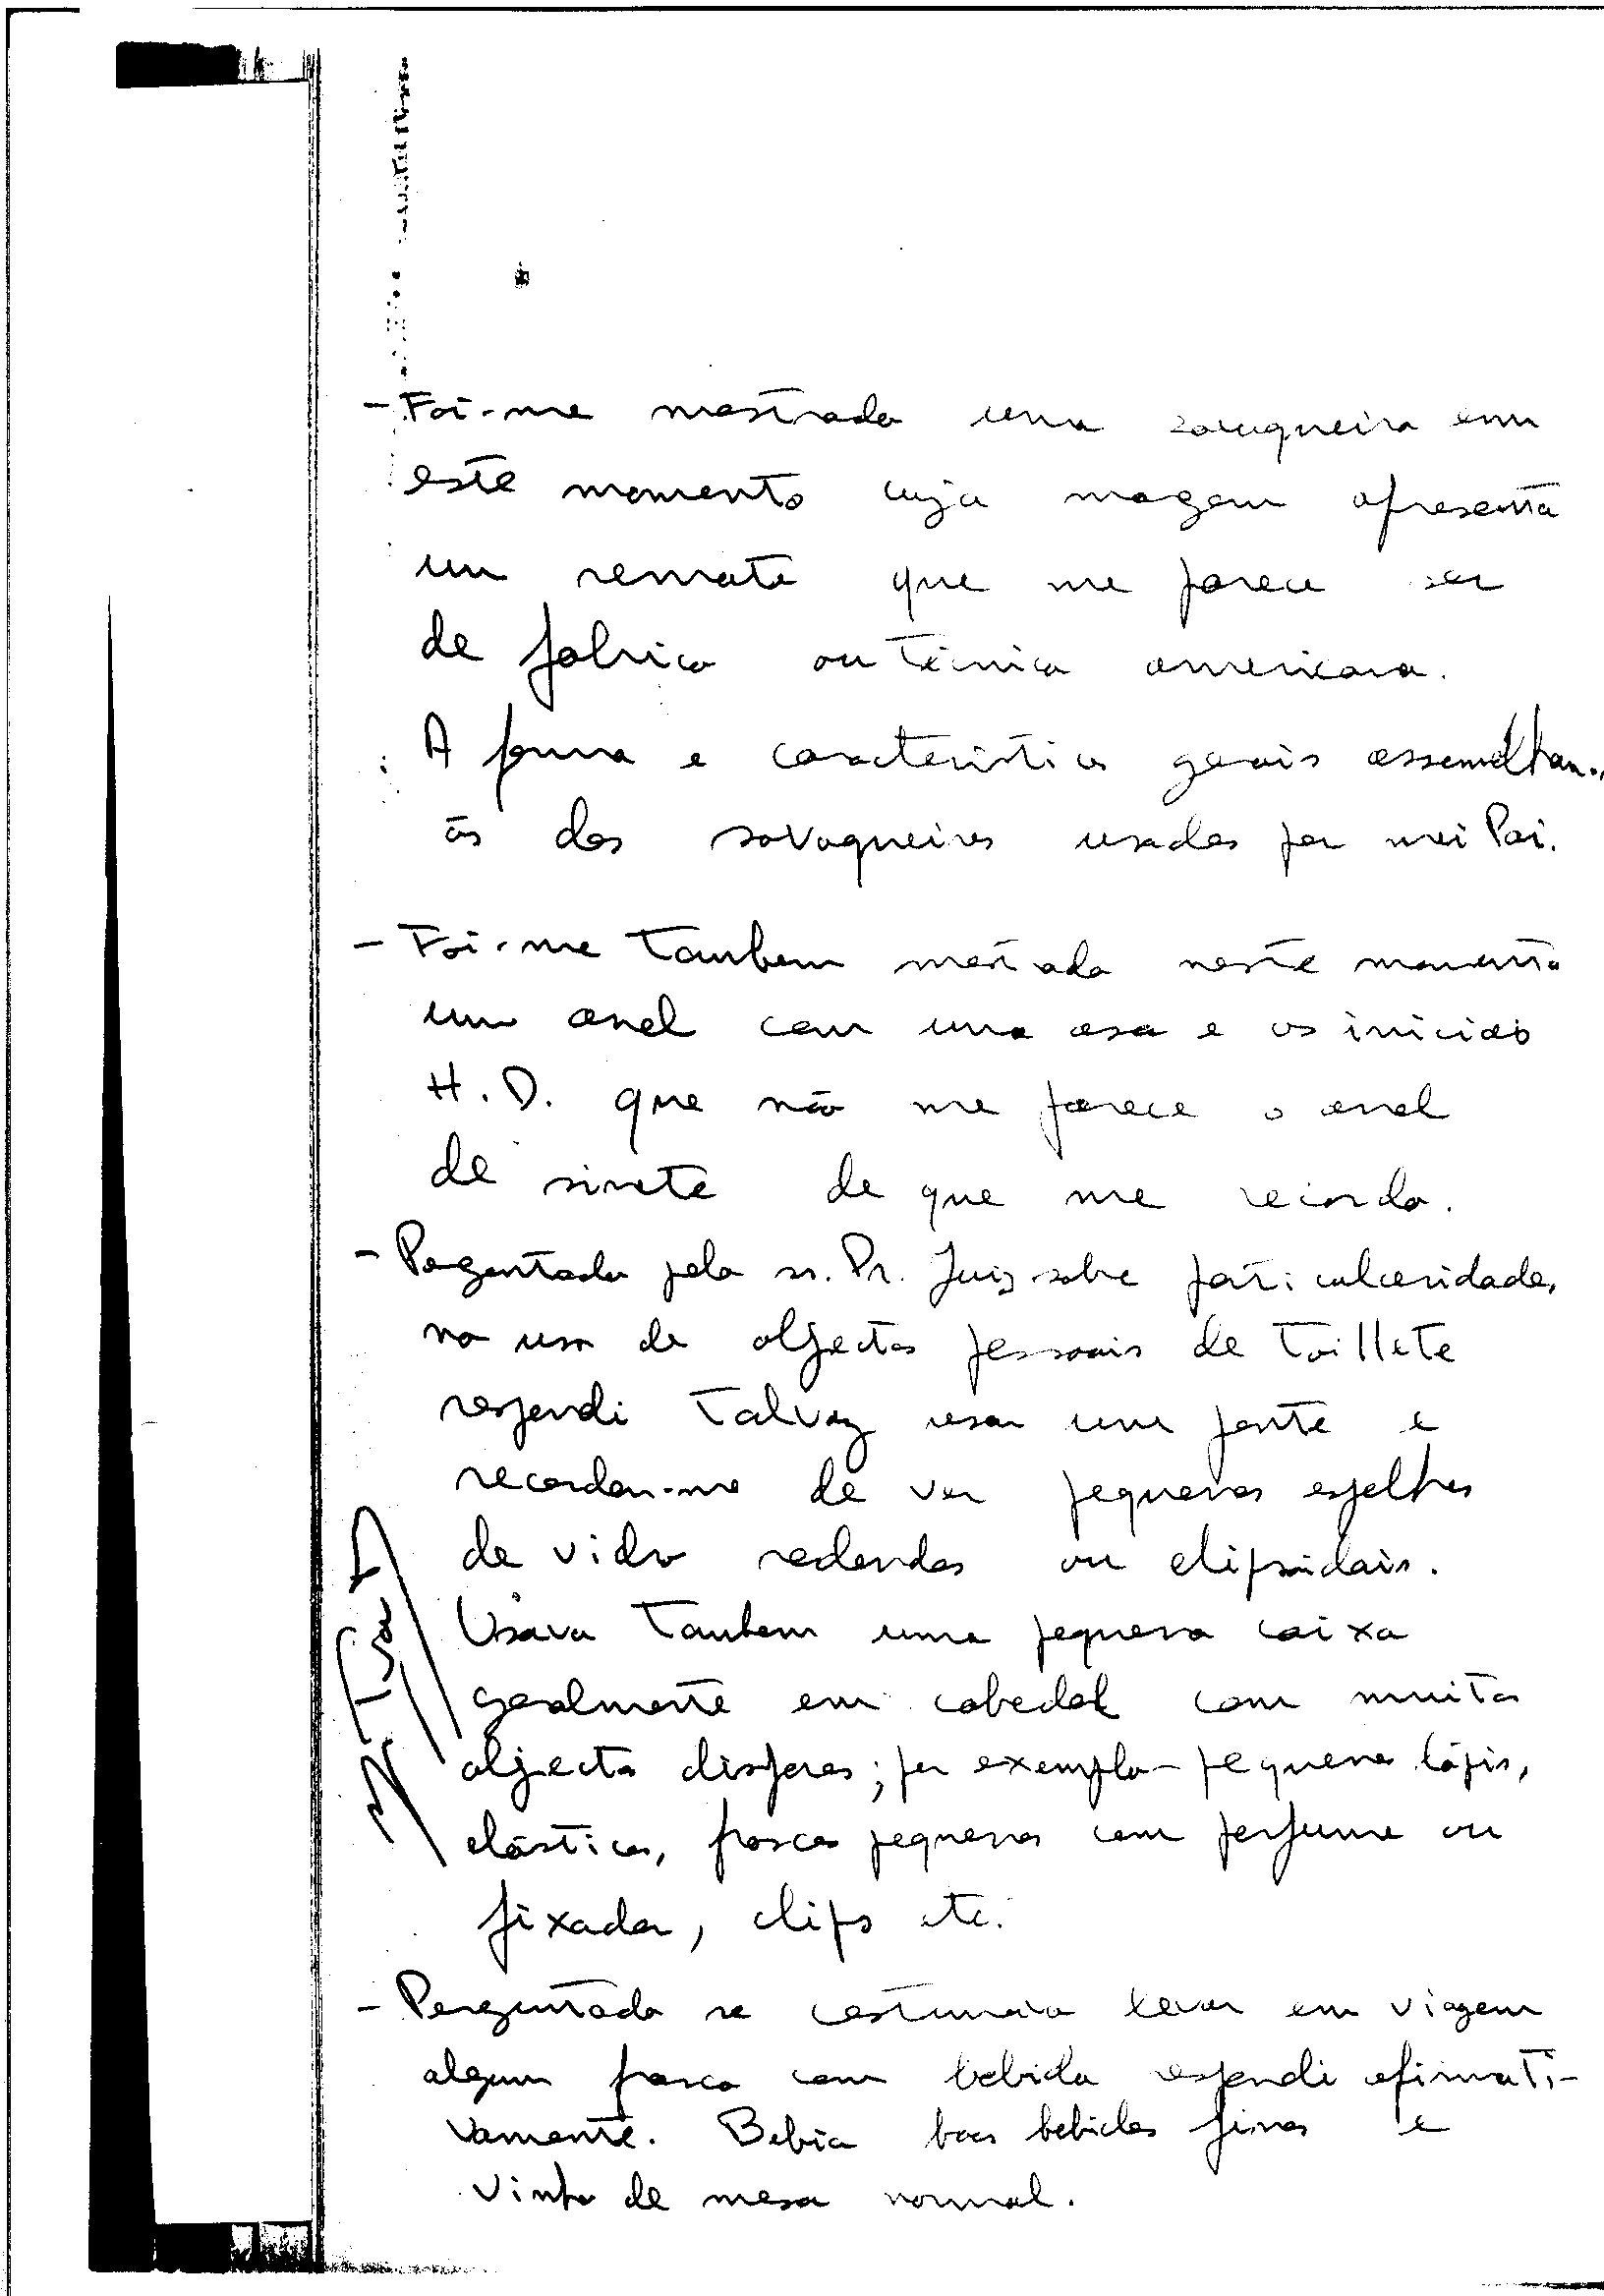 - Foi-me mostrado uma sovaqueira em
este momento cuja imagem apresenta
um remate que me parece ser
de fabrico ou técnica americana.
A forma e caracteristicas gerais assemelham-se
ás das sovaqueiras usadas por meu Pai.
- Foi-me tambem mostrado neste momento
um anel com uma asa e as iniciais
H. D. que não me parece o anel
de sinete de que me recordo.
- Perguntado pelo sr. Dr. Juiz sobre particularidades
no uso de objectos pessoais de toillete
respondi talvez usar um pente e
recordar-me de ver pequenos espelhos
de vidro redondos ou elipsoidais.
Usava tambem uma pequena caixa
geralmente em cabedal com muitos
objectos dispares; por exemplo - pequenos lápis,
elásticos, frascos pequenos com perfume ou
fixador, clips etc.
- Perguntado se costumava levar em viagem
algum frasco com bebida respondi afirmati-
vamente. Bebia boas bebidas finas e
vinho de mesa normal.